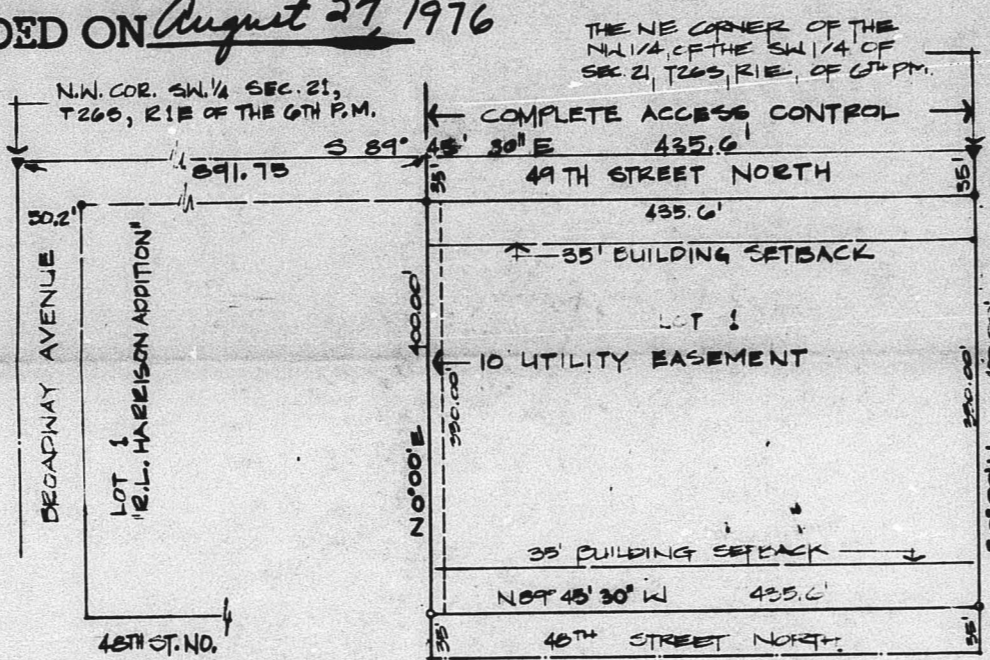 DED ON August 27, 1976
THE NE CORNER OF THE
NW 1/4, OF THE SW 1/4 OF
SEC. 21, T26S, R1E, OF 6TH PM.
N.W. COR. SW. 1/4 SEC. 21,
T26S, R1E OF THE 6TH P.M.
COMPLETE ACCESS CONTROL
S 89° 45' 30" E 435.6'
891.75
35'
49TH STREET NORTH
35'
50.2'
435.6'
35' BUILDING SETBACK
BROADWAY AVENUE
LOT 1
"R.L. HARRISON ADDITION"
N 0°00'E 400.00'
LOT 1
10' UTILITY EASEMENT
330.00'
330.00'
35' BUILDING SETBACK
N89° 45' 30" W 435.6'
48TH ST. NO.
35'
48TH STREET NORTH
35'